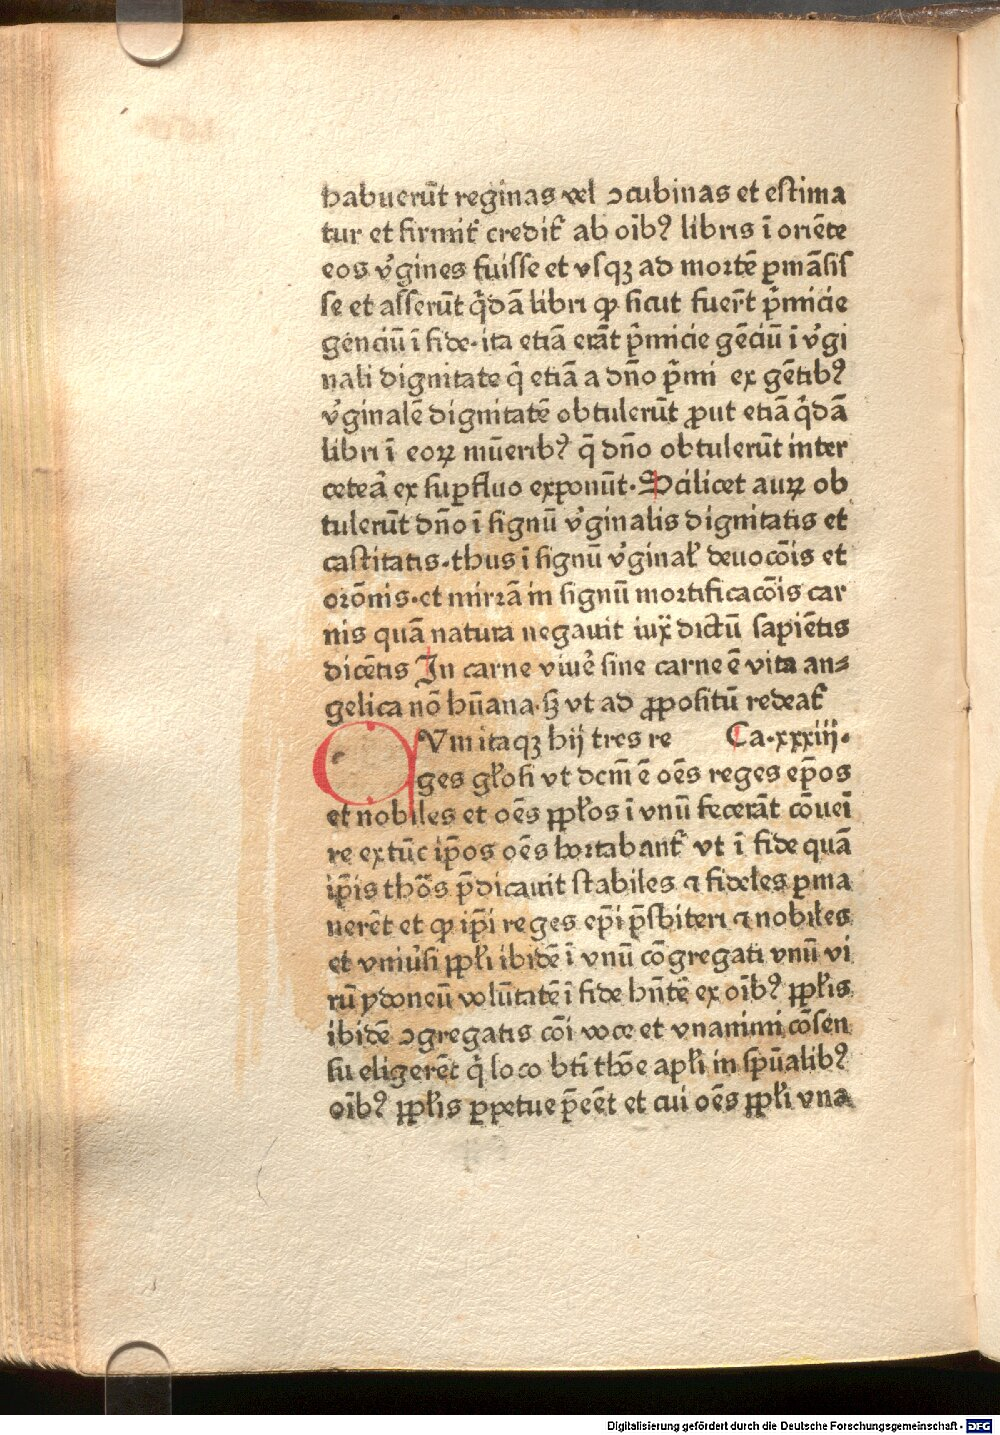 habuerūt reginas vel ↄcubinas et estima
tur et firmit᷑ credit᷑ ab oīb⁹ libris ī oriēte
eos v᷑gines fuisse et vsqꝫ ad mortē ꝑmāsis
se et asserūt q̄dā libri ꝙ sicut fuer̄t p̄micie
genciū ī fide·ita etiā erāt p̄micie gēciū ī v᷑gi
nali dignitate q̄ etiā a dn̄o p̄mi ex gētib⁹
v᷑ginalē dignitatē obtulerūt ꝓut etiā q̄dā
libri ī eoꝝ mūerib⁹ q̄ dn̄o obtulerūt inter
cetea᷑ ex suꝑfluo exponūt·Scilicet auꝝ ob
tulerūt dn̄o ī signū v᷑ginalis dignitatis et
castitatis·thus ī signū v᷑ginaꝉ deuocōis et
orōnis·et mirrā in signū mortificacōis car
nis quā natura negauit iux̄ dictū sapiētis
dicētis In carne viue᷑ sine carne ē vita an⸗
gelica nō hūana·sꝫ vt ad ꝓpositū redeat᷑
QVm itaqꝫ hij tres re Ca·xxxiij·
ges gꝉosi vt dcm̄ ē oēs reges ep̄os
et nobiles et oēs pp̄ꝉos ī vnū fecerāt cōueī
re extūc ip̄os oēs hortabant᷑ vt ī fide quā
ip̄is thōs p̄dicauit stabiles ⁊ fideles ꝑma
nerēt et ꝙ ip̄i reges ep̄i p̄sbiteri ⁊ nobiles
et vniu᷑si pp̄ꝉi ibidē ī vnū cōgregati vnū vi
rū ydoneū volūtatē ī fide hn̄tē ex oīb⁹ pp̄ꝉis
ibidē ↄgregatis cōi voce et vnanimi cōsen
su eligerēt q̄ loco btī thōe apꝉi in sp̄ualib⁹
oīb⁹ pp̄ꝉis ꝑpetue p̄eēt et cui oēs pp̄ꝉi vna
Digitalisierung gefördert durch die Deutsche Forschungsgemeinschaft - DFG